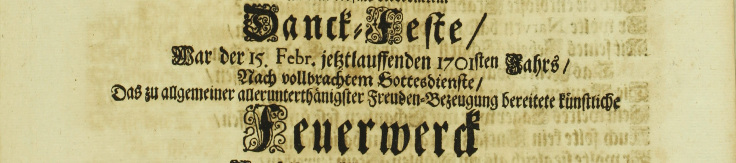 Danck-Feste/
War der 15. Febr. jetztlauffenden 1701sten Jahrs/
Nach vollbrachtem Gottesdienste/
Das zu allgemeiner allerunterthänigster Freuden-Bezeugung bereitete künstliche
Feuerwerck